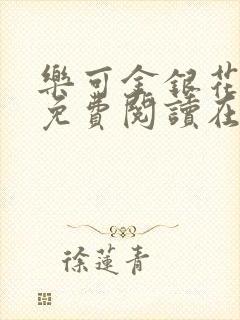 樂可金銀花
免費閱讀在
徐蓮青